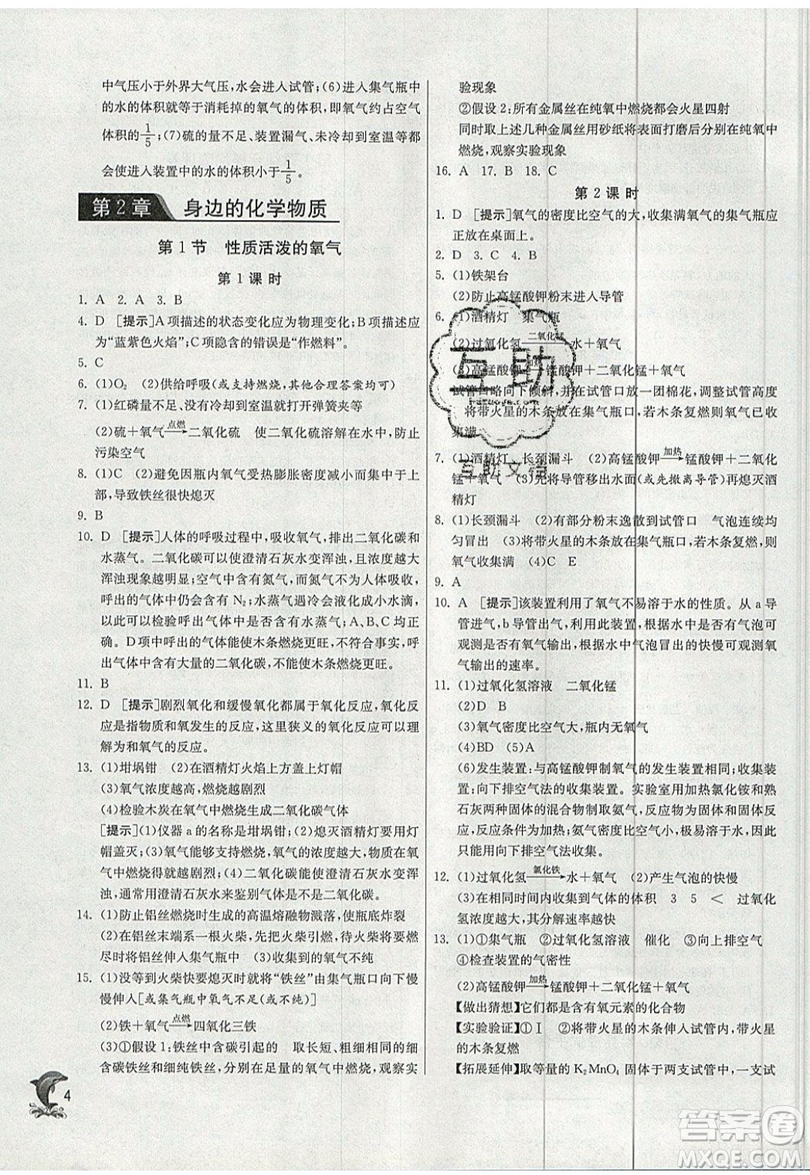 中气压小于外界大气压,水会进入试管;(6)进入集气瓶中
的水的体积就等于消耗掉的氧气的体积,即氧气约占空气
体积的1/5;(7)硫的量不足、装置漏气、未冷却到室温等都
会使进入装置中的水的体积小于1/5。
第2章 身边的化学物质
第1节 性质活泼的氧气
第1课时
1. A 2. A 3. B
4. D [提示]A项描述的状态变化应为物理变化;B项应为
“蓝紫色火焰”;C项隐含的错误是“作燃料”。
5. C
6. (1)O₂ (2)供给呼吸(或支持燃烧,其他合理答案均可)
7. (1)红磷量不足、没有冷却到室温就打开弹簧夹等
(2)硫+氧气 点燃→ 二氧化硫 使二氧化硫溶解在水中,防止
污染空气
8. (1)C (2)避免因瓶内氧气受热膨胀密度减小而集中于上
部,导致铁丝很快熄灭
9. B
10. D [提示]人体的呼吸过程中,吸收氧气,排出二氧化碳和
水蒸气。二氧化碳可以使澄清石灰水变浑浊,且浓度越大
浑浊现象越明显;空气中含有氮气,而氮气不为人体吸收,
呼出的气体中就含有N₂;水蒸气遇冷会形成小水滴,
以此可以检验呼出的气体中含有水蒸气。故A、B、C三项
正确。D项中呼出的气体能使木条燃烧更旺,不符合事实,
呼出气体中含有大量的二氧化碳,不能使木条燃烧更旺。
11. B
12. D [提示]剧烈氧化和缓慢氧化都属于氧化反应,氧化反
应是指物质和氧发生的反应,这里狭义的氧化反应可以理
解为和氧气的反应。
13. (1)坩埚钳 (2)在酒精灯火焰上方盖上灯帽
(3)氧气浓度越高,燃烧越剧烈
(4)检验木炭在氧气中燃烧生成二氧化碳
[提示](1)仪器a的名称是坩埚钳;(2)熄灭酒精灯要用灯
帽盖灭;(3)氧气能够支持燃烧,氧气的浓度越大,木炭燃
烧越剧烈;(4)由于二氧化碳能使澄清石灰水变浑浊,
通常用澄清石灰水来鉴别二氧化碳。
14. (1)防止铝丝燃烧时生成的高温熔融物溅落,使瓶底炸裂
(2)在铝丝末端系一根火柴,点燃火柴引燃,待火柴快燃尽
时,再将铝丝由上而下缓慢伸入盛有氧气的集气瓶中
15. (1)没等到火柴快要熄灭时就将“铁丝”由集气瓶口向下慢
慢伸入[或集气瓶中氧气不足(或不纯)]
(2)铁+氧气 点燃→ 四氧化三铁
(3)①假设1:铁丝中含碳引起的 取长短、粗细相同的同
种含碳细铁丝和细纯铁丝,分别在足量的氧气中燃烧,观察实
验现象
②假设2:所有金属丝在纯氧中燃烧都会火星四射
同时取上述几种金属丝用砂纸将表面打磨后分别在纯氧中
燃烧,观察实验现象
16. A 17. B 18. C
第2课时
1. D [提示]氧气的密度比空气的大,收集满氧气的集气瓶应
正放在桌面上。
2. D 3. C 4. B
5. (1)铁架台
(2)防止高锰酸钾粉末进入导管
6. (1)酒精灯 集气瓶
(2)过氧化氢 二氧化锰→ 水+氧气
(3)高锰酸钾 加热→ 锰酸钾+二氧化锰+氧气
试管口略向下倾斜,并在试管口放一团棉花,调节试管高度
将带火星的木条放在集气瓶口,若木条复燃,则氧气已收
集满
7. (1)酒精灯、长颈漏斗 (2)高锰酸钾 加热→ 锰酸钾+二氧化
锰+氧气 (3)先将导管移出水面(或先撤离导管)再熄灭酒
精灯
8. (1)长颈漏斗 (2)有部分粉末逸散到试管口 气泡连续均
匀冒出 (3)将带火星的木条放在集气瓶口,若木条复燃,证明
氧气收集满 (4)C E
9. A
10. A [提示]该装置利用了氧气不易溶于水的性质。从a导
管进气,b导管出气;根据广口瓶中水里是否有气泡可
观测是否有氧气输出;根据水中气泡冒出的快慢可观测
氧气输出的速率。
11. (1)过氧化氢溶液 二氧化锰
(2)D B
(3)氧气密度比空气大,瓶内无氧气
(4)BD (5)AD
(6)发生装置:与高锰酸钾制氧气的发生装置相同;收集装
置:向下排空气法的收集装置。实验室用加热氯化铵和熟
石灰两种固体的混合物制取氨气,是固体加热,与高锰酸
钾的反应条件一样;氨气密度比空气小,极易溶于水,故
应用向下排空气法收集。
12. (1)过氧化氢 氯化铁→ 水+氧气 (2)产生气泡的快慢
(3)在相同时间内收集气体的体积 3 5 < 过氧化
氢浓度越大,其分解速率越快
13. (1)①集气瓶 ②过氧化氢溶液 催化 ③向上排空气
④检查装置的气密性
(2)高锰酸钾 加热→ 锰酸钾+二氧化锰+氧气
【做出猜想】它们都是含有氧元素的化合物
【实验验证】①Ⅰ ②将带火星的木条伸入试管内,带火星
的木条复燃
【拓展延伸】取等量的K₂MnO₄固体于两支试管中,一支试
互助
互助文锦
4
答案圈
MXQE.COM